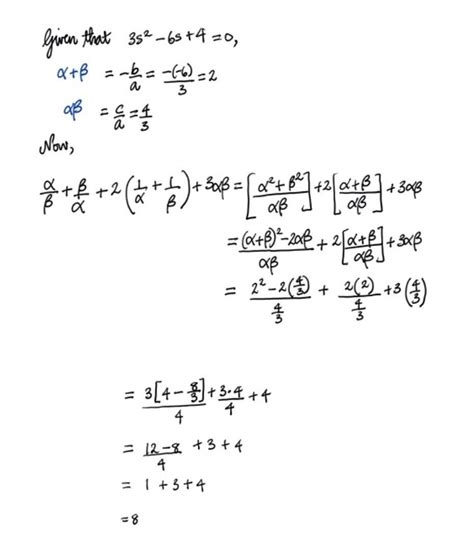 Given that 3s² - 6s + 4 = 0,
α+β = -b/a = -(-6)/3 = 2
αβ = c/a = 4/3
Now,
α/β + β/α + 2(1/α + 1/β) + 3αβ = [(α² + β²)/αβ] + 2[(α+β)/αβ] + 3αβ
= ((α+β)² - 2αβ)/αβ + 2[(α+β)/αβ] + 3αβ
= (2² - 2(4/3))/(4/3) + 2(2)/(4/3) + 3(4/3)
= 3[4 - 8/3]/4 + 3·4/4 + 4
= (12-8)/4 + 3 + 4
= 1 + 3 + 4
= 8